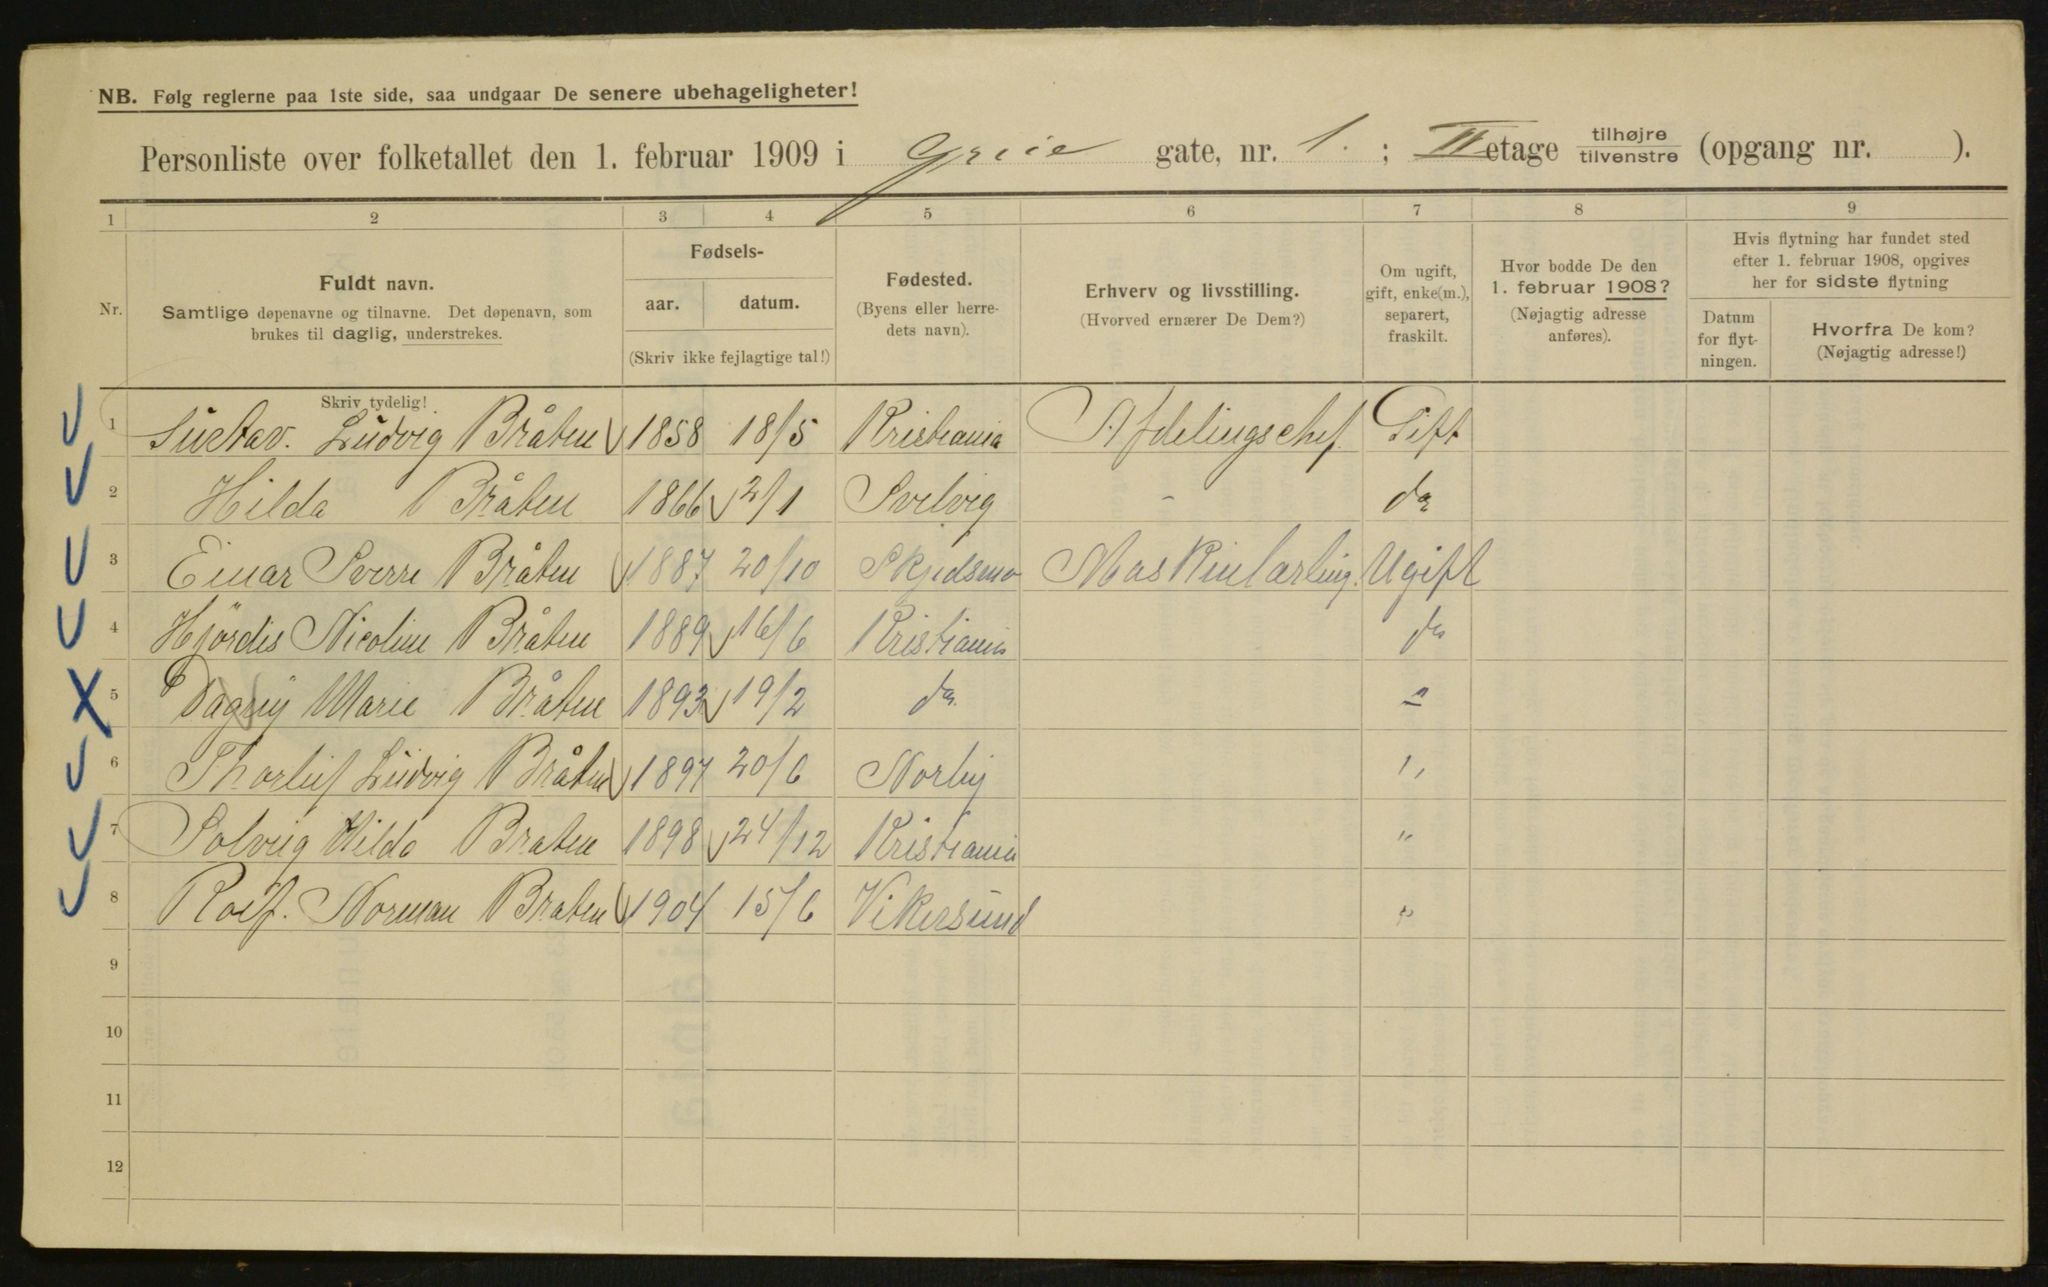 NB. Følg reglerne paa 1ste side, saa undgaar De senere ubehageligheter!
Personliste over folketallet den 1. februar 1909 i Griie gate, nr. 1. ; II etage tilhøjre / tilvenstre (opgang nr. ).
1 2 3 4 5 6 7 8 9
Nr.
Fuldt navn.
Samtlige døpenavne og tilnavne. Det døpenavn, som
brukes til daglig, understrekes.
Skriv tydelig!
Fødsels-
aar. datum.
(Skriv ikke fejlagtige tal!)
Fødested.
(Byens eller herre-
dets navn).
Erhverv og livsstilling.
(Hvorved ernærer De Dem?)
Om ugift,
gift, enke(m.),
separert,
fraskilt.
Hvor bodde De den
1. februar 1908?
(Nøjagtig adresse
anføres).
Hvis flytning har fundet sted
efter 1. februar 1908, opgives
her for sidste flytning
Datum
for flyt-
ningen.
Hvorfra De kom?
(Nøjagtig adresse!)
1 Gustav. Ludvig Bråten 1858 18/5 Kristiania Afdelingschef Gift
2 Hilda Bråten 1866 2/1 Svelvig - do
3 Einar Sverre Bråten 1887 20/10 Skjedsmo Maskinlærling. Ugift
4 Hjördis Nicoline Bråten 1889 16/6 Kristiania do
5 Dagny Marie Bråten 1893 19/2 do. "
6 Thorleif Ludvig Bråten 1897 20/6 Norby "
7 Solveig Hilda Braten 1898 24/12 Kristiania "
8 Rolf. Norman Braten 1904 15/6 Vikersund "
9
10
11
12